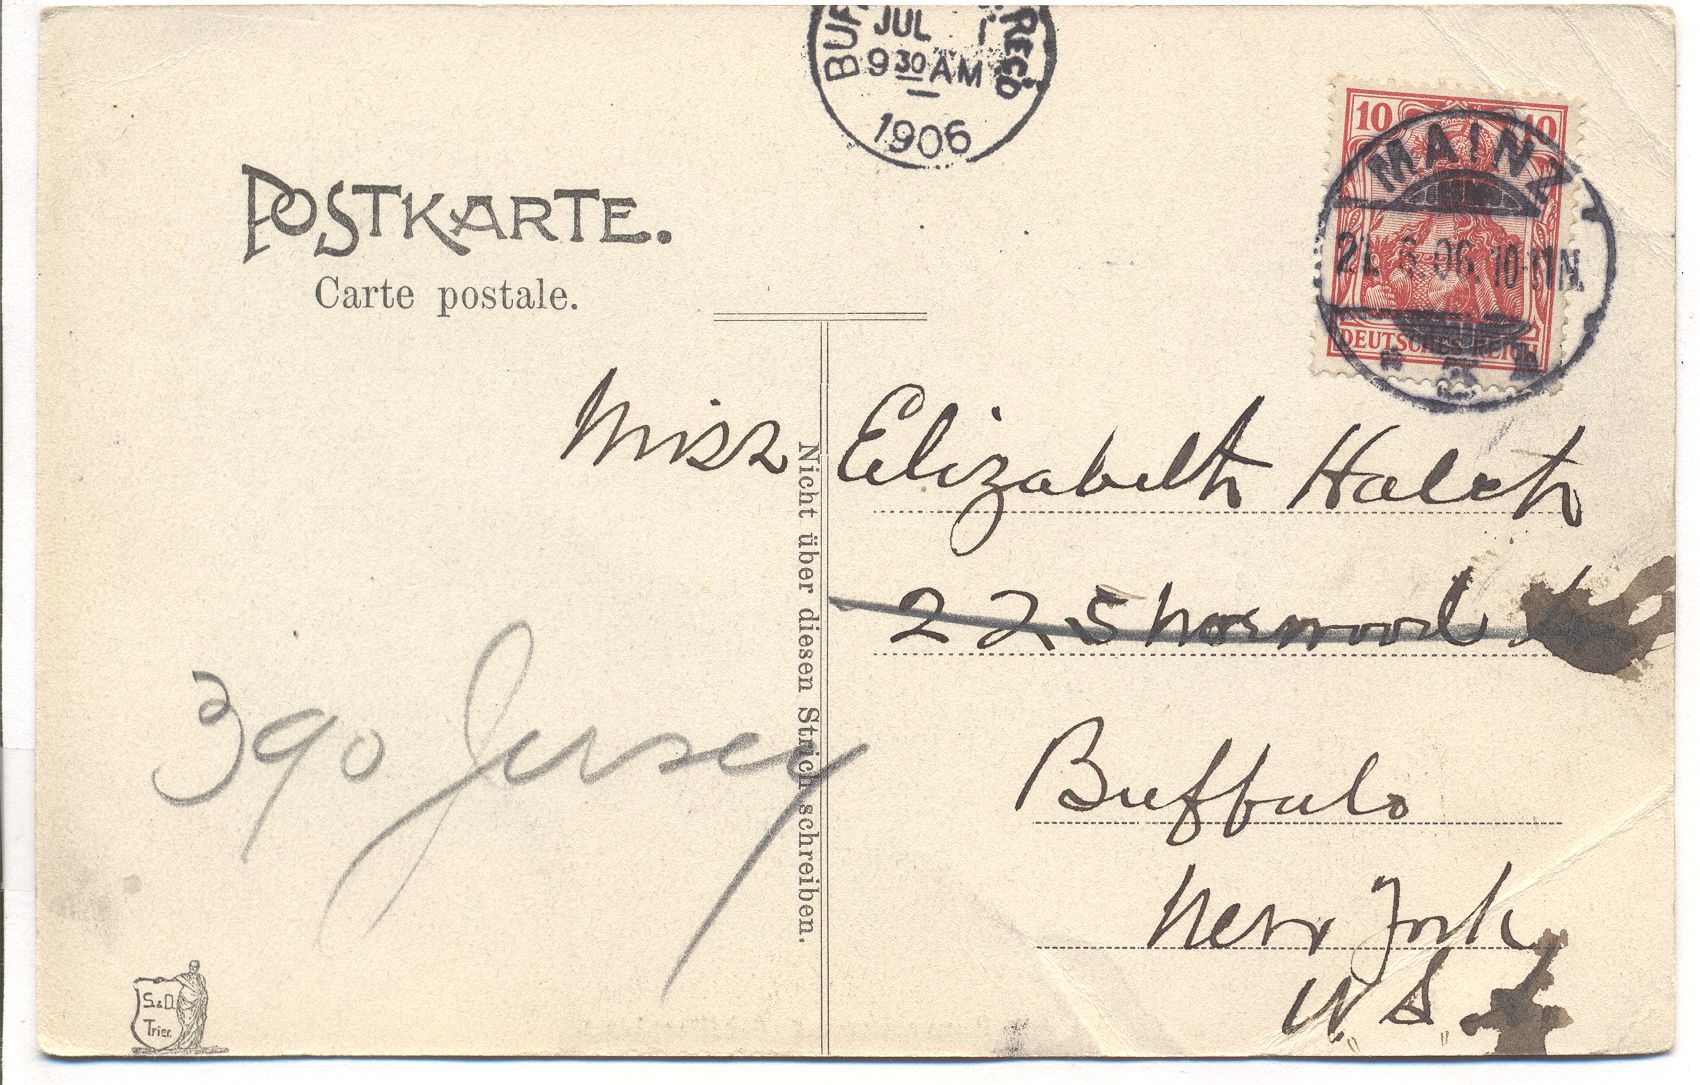 JUL 1
REC'D
9 30 AM
1906
10 10
MAINZ
21. 6. 06. 10-11N.
DEUTSCHES REICH
POSTKARTE.
Carte postale.
Miss Elizabeth
225 Norwood
Buffalo
New York
U.S.
Nicht über diesen Strich schreiben.
390 Jersey
S. & D.
Trier.